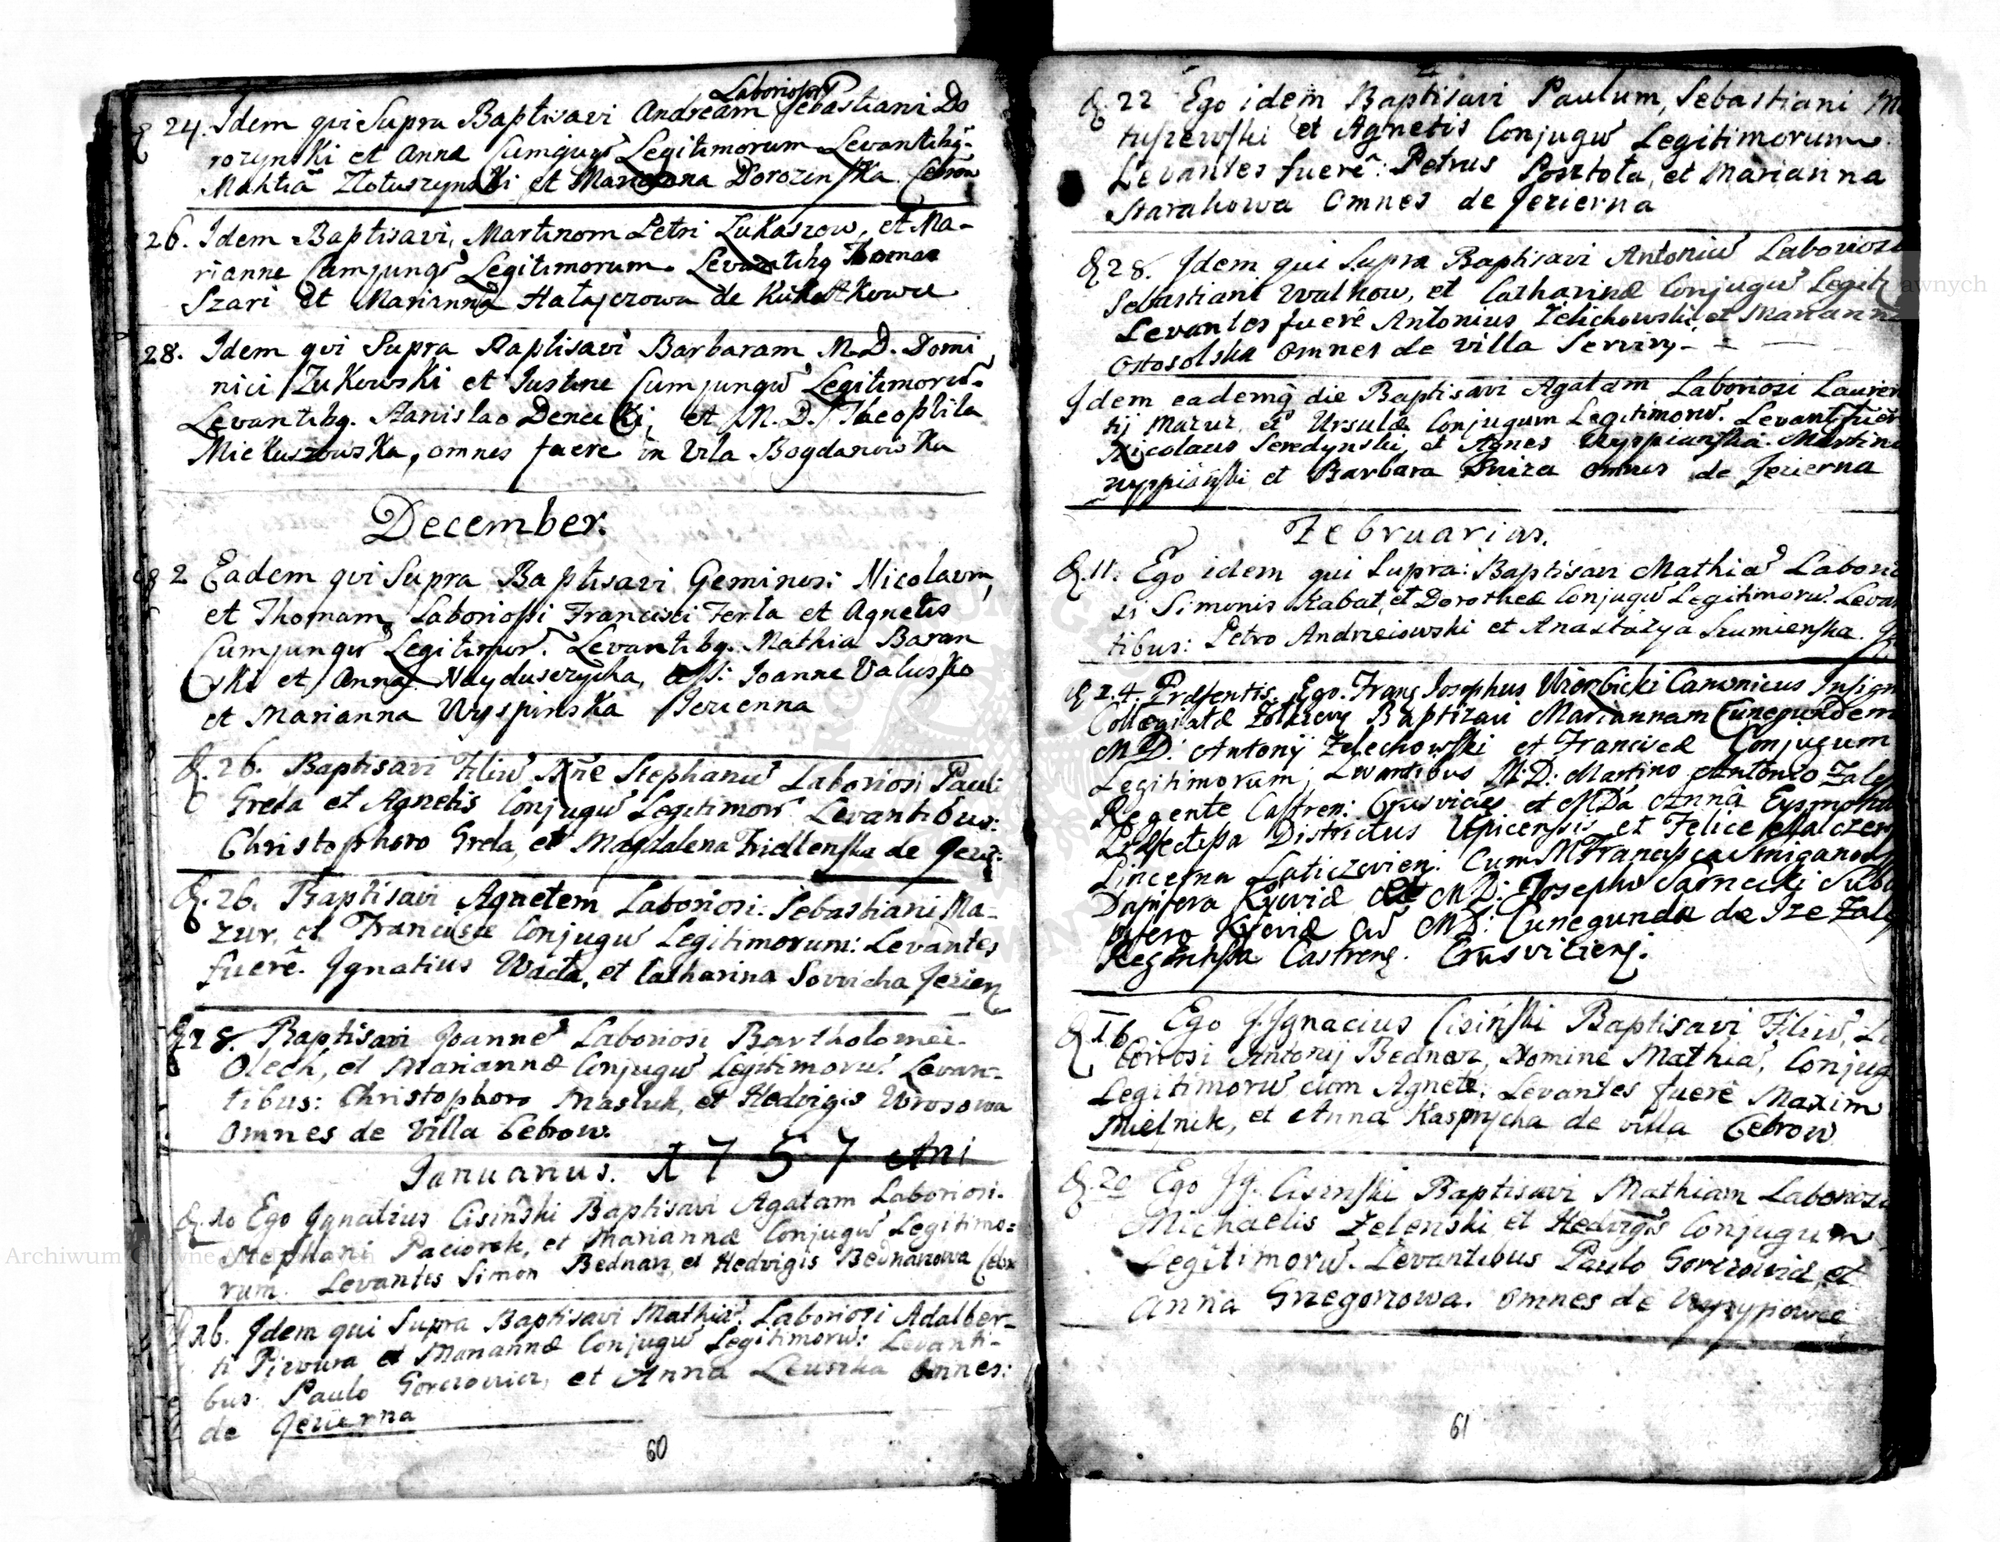 Laboriosi
& 24. Idem qui Supra Baptisavi Andream Sebastiani Do
rozynski et Annæ Cumjugũ Legitimorum Levantibg.
Mathia Złotuszynski et Marianna Dorozinska Cebrow
26. Idem Baptisavi, Martinom Petri Lukaszow, et Ma-
rianne Cumjungũ Legitimorum. Levantibg Thomas
Szari et Marianna Hatajczowa de
28. Idem qvi Supra Baptisavi Barbaram M.D. Domi
nici Zukowski et Justine Cumjungũ Legitimorũ.
Levantibg. Stanislao Denecki, et M.D. Theophila
Mickuszowska, omnes fuere in Vila Bogdanowska
December.
2 Eadem qvi Supra Baptisavi Geminos: Nicolaum,
et Thomam Laboriossi Francisci Ferla et Agnetis
Cumjungũ Legitimor. Levantibg. Mathia Baran
ski et Anna Nayduszycha, ass: Joanne Valusko
et Marianna Wyspinska Jezienna
&. 26. Baptisavi Filiũ Nñe Stephanũ Laboriosi Pauli
Grela et Agnetis Conjugũ Legitimorũ Levantibus:
Christophoro Grela, et Magdalena Friedlenska de Jezi:
&. 26. Baptisavi Agnetem Laboriosi: Sebastiani Ma-
zur, et Franciscæ Conjugũ Legitimorum: Levantes
fuerẽ. Ignatius Wacta, et Catharina Sowicha Jezien
& 28. Baptisavi Joannẽ Laboriosi Bartholomei
Olech, et Mariannæ Conjugũ Legitimorũ Levan-
tibus: Christophoro Masluk, et Hedvigis Wrosowa
Omnes de Villa Cebrow.
Januarius. 1757 Ani
&. 10 Ego Ignatius Cisiński Baptisavi Agatam Laboriosi.
Stephani Paciorek, et Mariannæ Conjugũ Legitimo=
rum. Levantes Simon Bednarz, et Hedvigis Bednarzowa Cebr
& 16. Idem qui Supra Baptisavi Mathiã Laboriosi Adalber-
ti Piwura et Mariannæ Conjugũ Legitimorũ: Levanti-
bus Paulo Gorczowicz, et Anna Leuszka Omnes:
de Jezierna
60
&. 22 Ego idem Baptisavi Paulum, Sebastiani Ma
tuszewski et Agnetis Conjugũ Legitimorum.
Levantes fuerẽ: Petrus Posztota, et Marianna
Starahowa Omnes de Jezierna
& 28. Idem qui Supra Baptisavi Antoniũ Laboriosi
Sebastiani Walkow, et Catharinæ Conjugũ Legiti
Levantes fuerẽ Antonius Zelichowski, et Marianna
Ostosolska Omnes de villa
Idem eademq die Baptisavi Agatam Laboriosi Lauren
tij Mazur, et Ursulæ Conjugum Legitimorũ. Levant fuer
Nicolaus Seredynski, et Agnes Wyspianska. Martinus
Wyspiański et Barbara Omnes de Jezierna
Februarius.
&. 11. Ego idem qui Supra: Baptisavi Mathiã Labori
si Simonis Kabat, et Dorotheæ Conjugũ Legitimorũ. Levan
tibus: Petro Andrzeiowski et Anastazya Szumienska.
& 24. Præsentis. Ego. Franc Josephus Wierzbicki Canonicus Insign
Collegiatæ Zolkiew Baptizavi Mariannam Cunegundem
M D. Antonij Zelechowski et Franciscæ Conjugum
Legitimorum; Levantibus M. D: Martino Antonio Zale
Regente Castren: Crusvicien et MDa Annã
Districtus Upicensis et Felice Malczew
Pincerna Laticzevien: Cum M Francisca
Dapifera Kijoviæ et M D: Josepho Sarnecki Sub
Kijoviæ cũ M D: Cunegunda de Zale
Regentissa Castrens. Crusviciens.
& 16 Ego J. Ignacius Cisiński Baptisavi Filiũ, La
boriosi Antonij Bednarz, Nomine Mathiã, Conjug
Legitimorũ cum Agnete: Levantes fuerẽ Maxim
Mielnik, et Anna Kasprycha de villa Cebrow
&. 20 Ego Jg. Cisinski Baptisavi Mathiam Laboriosi
Michaelis Zelenski et Hedvigis Conjugum
Legitimorũ. Levantibus Paulo Gorczowicz, et
Anna Grzegorzowa. Omnes de
61
Archiwum Główne Akt Dawnych